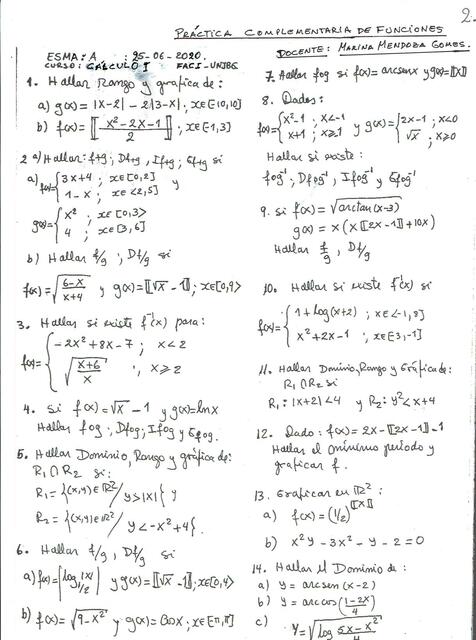 2.
PRÁCTICA COMPLEMENTARIA DE FUNCIONES
ESMA: A : 25-06-2020.
CURSO: CÁLCULO I FACI-UNJBG
DOCENTE: MARINA MENDOZA GOMES.
1. Hallar Rango y grafica de:
a) g(x) = |x-2| - 2|3-x| ; x∈[-10,10]
b) f(x) = [[ (-x²-2x-1)/2 ]] ; x∈[-1,3]
2 a) Hallar: f+g ; Df+g , If+g ; Gf+g si
a) f(x)= { 3x+4 ; x∈[0,2]
1-x ; x∈<2,5] y
g(x)= { x² ; x∈[0,3>
4 ; x∈[3,6]
b) Hallar f/g ; Df/g si
f(x)= √((6-x)/(x+4)) y g(x)=[[√x - 1]] ; x∈[0,9>
3. Hallar si existe f⁻¹(x) para:
f(x)= { -2x²+8x-7 ; x<2
√((x+6)/x) ; x≥2
4. Si f(x)=√x - 1 y g(x)=lnx
Hallar fog ; Dfog ; Ifog y Gfog.
5. Hallar Dominio, Rango y gráfica de:
R₁ ∩ R₂ si:
R₁ = {(x,y)∈ℝ² / y>|x|} y
R₂ = {(x,y)∈ℝ² / y<-x²+4}.
6. Hallar f/g , Df/g si
a) f(x)=|log₁/₂|x|| y g(x)=[[√x - 1]] ; x∈[0,4>
b) f(x)=√(9-x²) y g(x)=Cosx ; x∈[-π,π]
7. Hallar fog si f(x)=arcsenx y g(x)=[[x]]
8. Dados:
f(x)= { x²-1 ; x<-1
x+1 ; x≥1 y g(x)= { 2x-1 ; x<0
√x ; x≥0
Hallar si existe:
fog⁻¹ ; Dfog⁻¹ , Ifog⁻¹ y Gfog⁻¹
9. si f(x)=√(arctan(x-3))
g(x) = x(x[[2x-1]]+10x)
Hallar f/g , Df/g
10. Hallar si existe f⁻¹(x) si
f(x)= { 1+log(x+2) ; x∈<-1,8]
x²+2x-1 ; x∈[-3,-1]
11. Hallar Dominio, Rango y Gráfica de:
R₁ ∩ R₂ si
R₁: |x+2|<4 y R₂: y²<x+4
12. Dado: f(x)=2x-[[2x-1]]-1
Hallar el mínimo periodo y
graficar f.
13. Graficar en ℝ²:
a) f(x)=(1/2)^[[x]]
b) x²y-3x²-y-2=0
14. Hallar el Dominio de:
a) y = arcsen(x-2)
b) y = arccos((1-2x)/4)
c) y=√(log (5x-x²)/4)